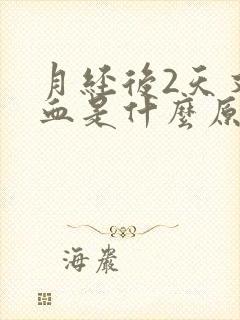 月经後2天
血是什麼原
海巖